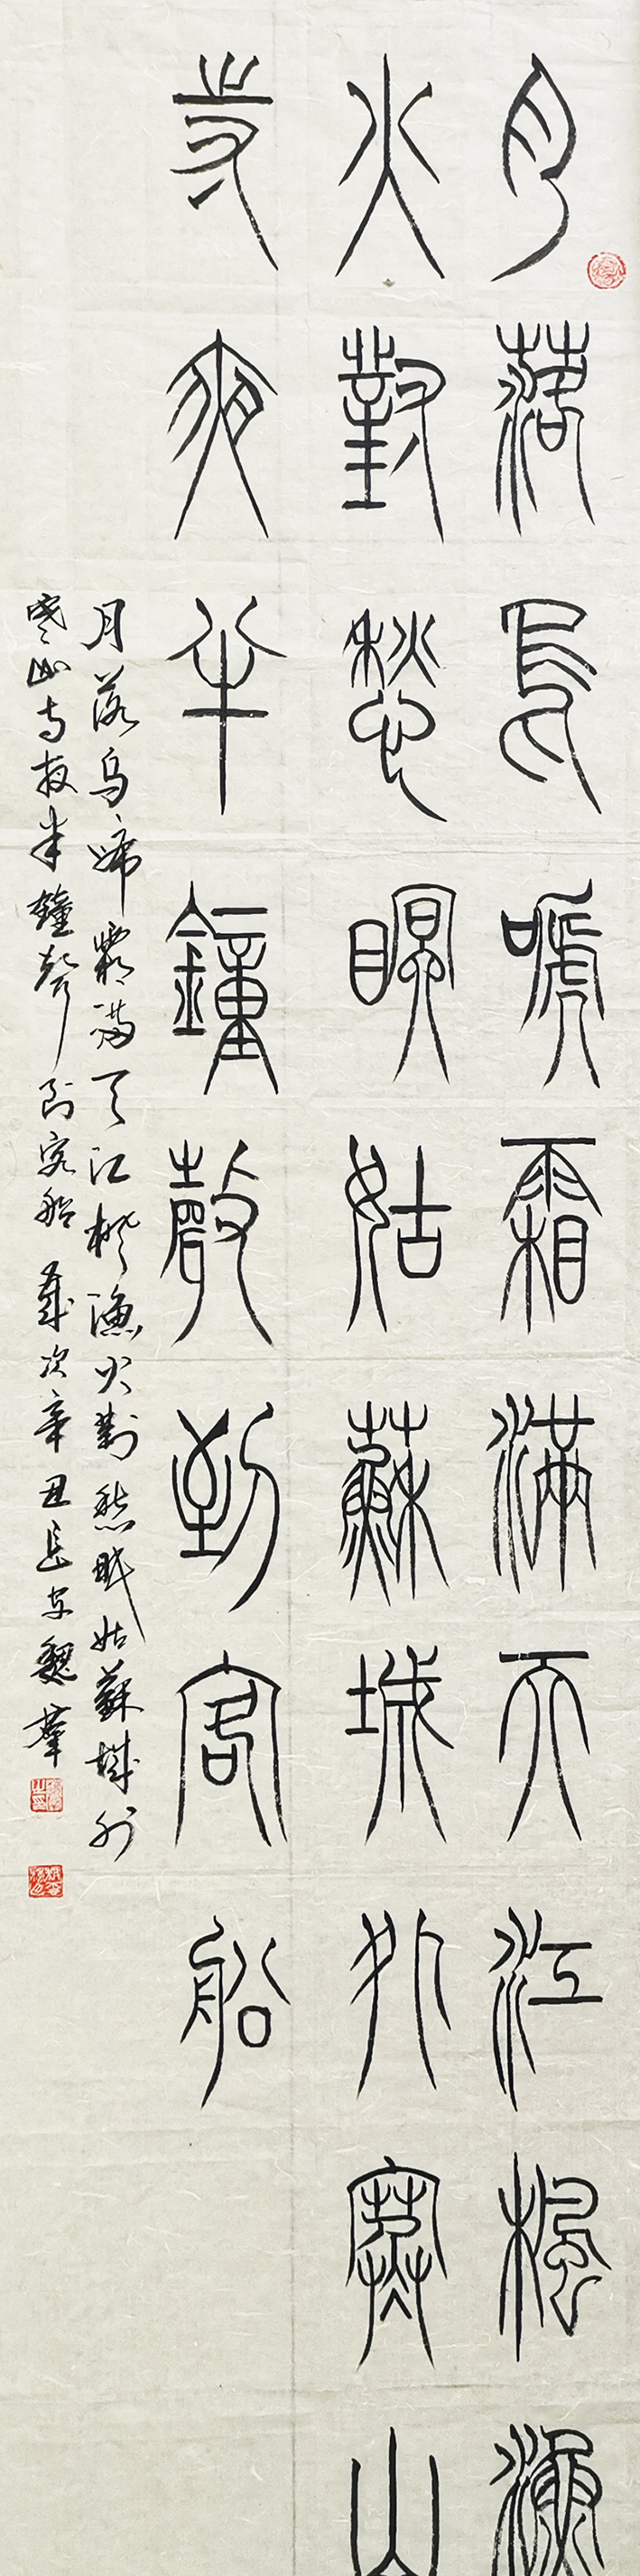 月落烏嗁霜滿天江楓漁
火對愁瞑姑蘇城外寒山
寺夜半鐘聲到客船
月落烏啼霜滿天江楓漁火對愁眠姑蘇城外
寒山寺夜半鐘聲到客船歲次辛丑長安魏華